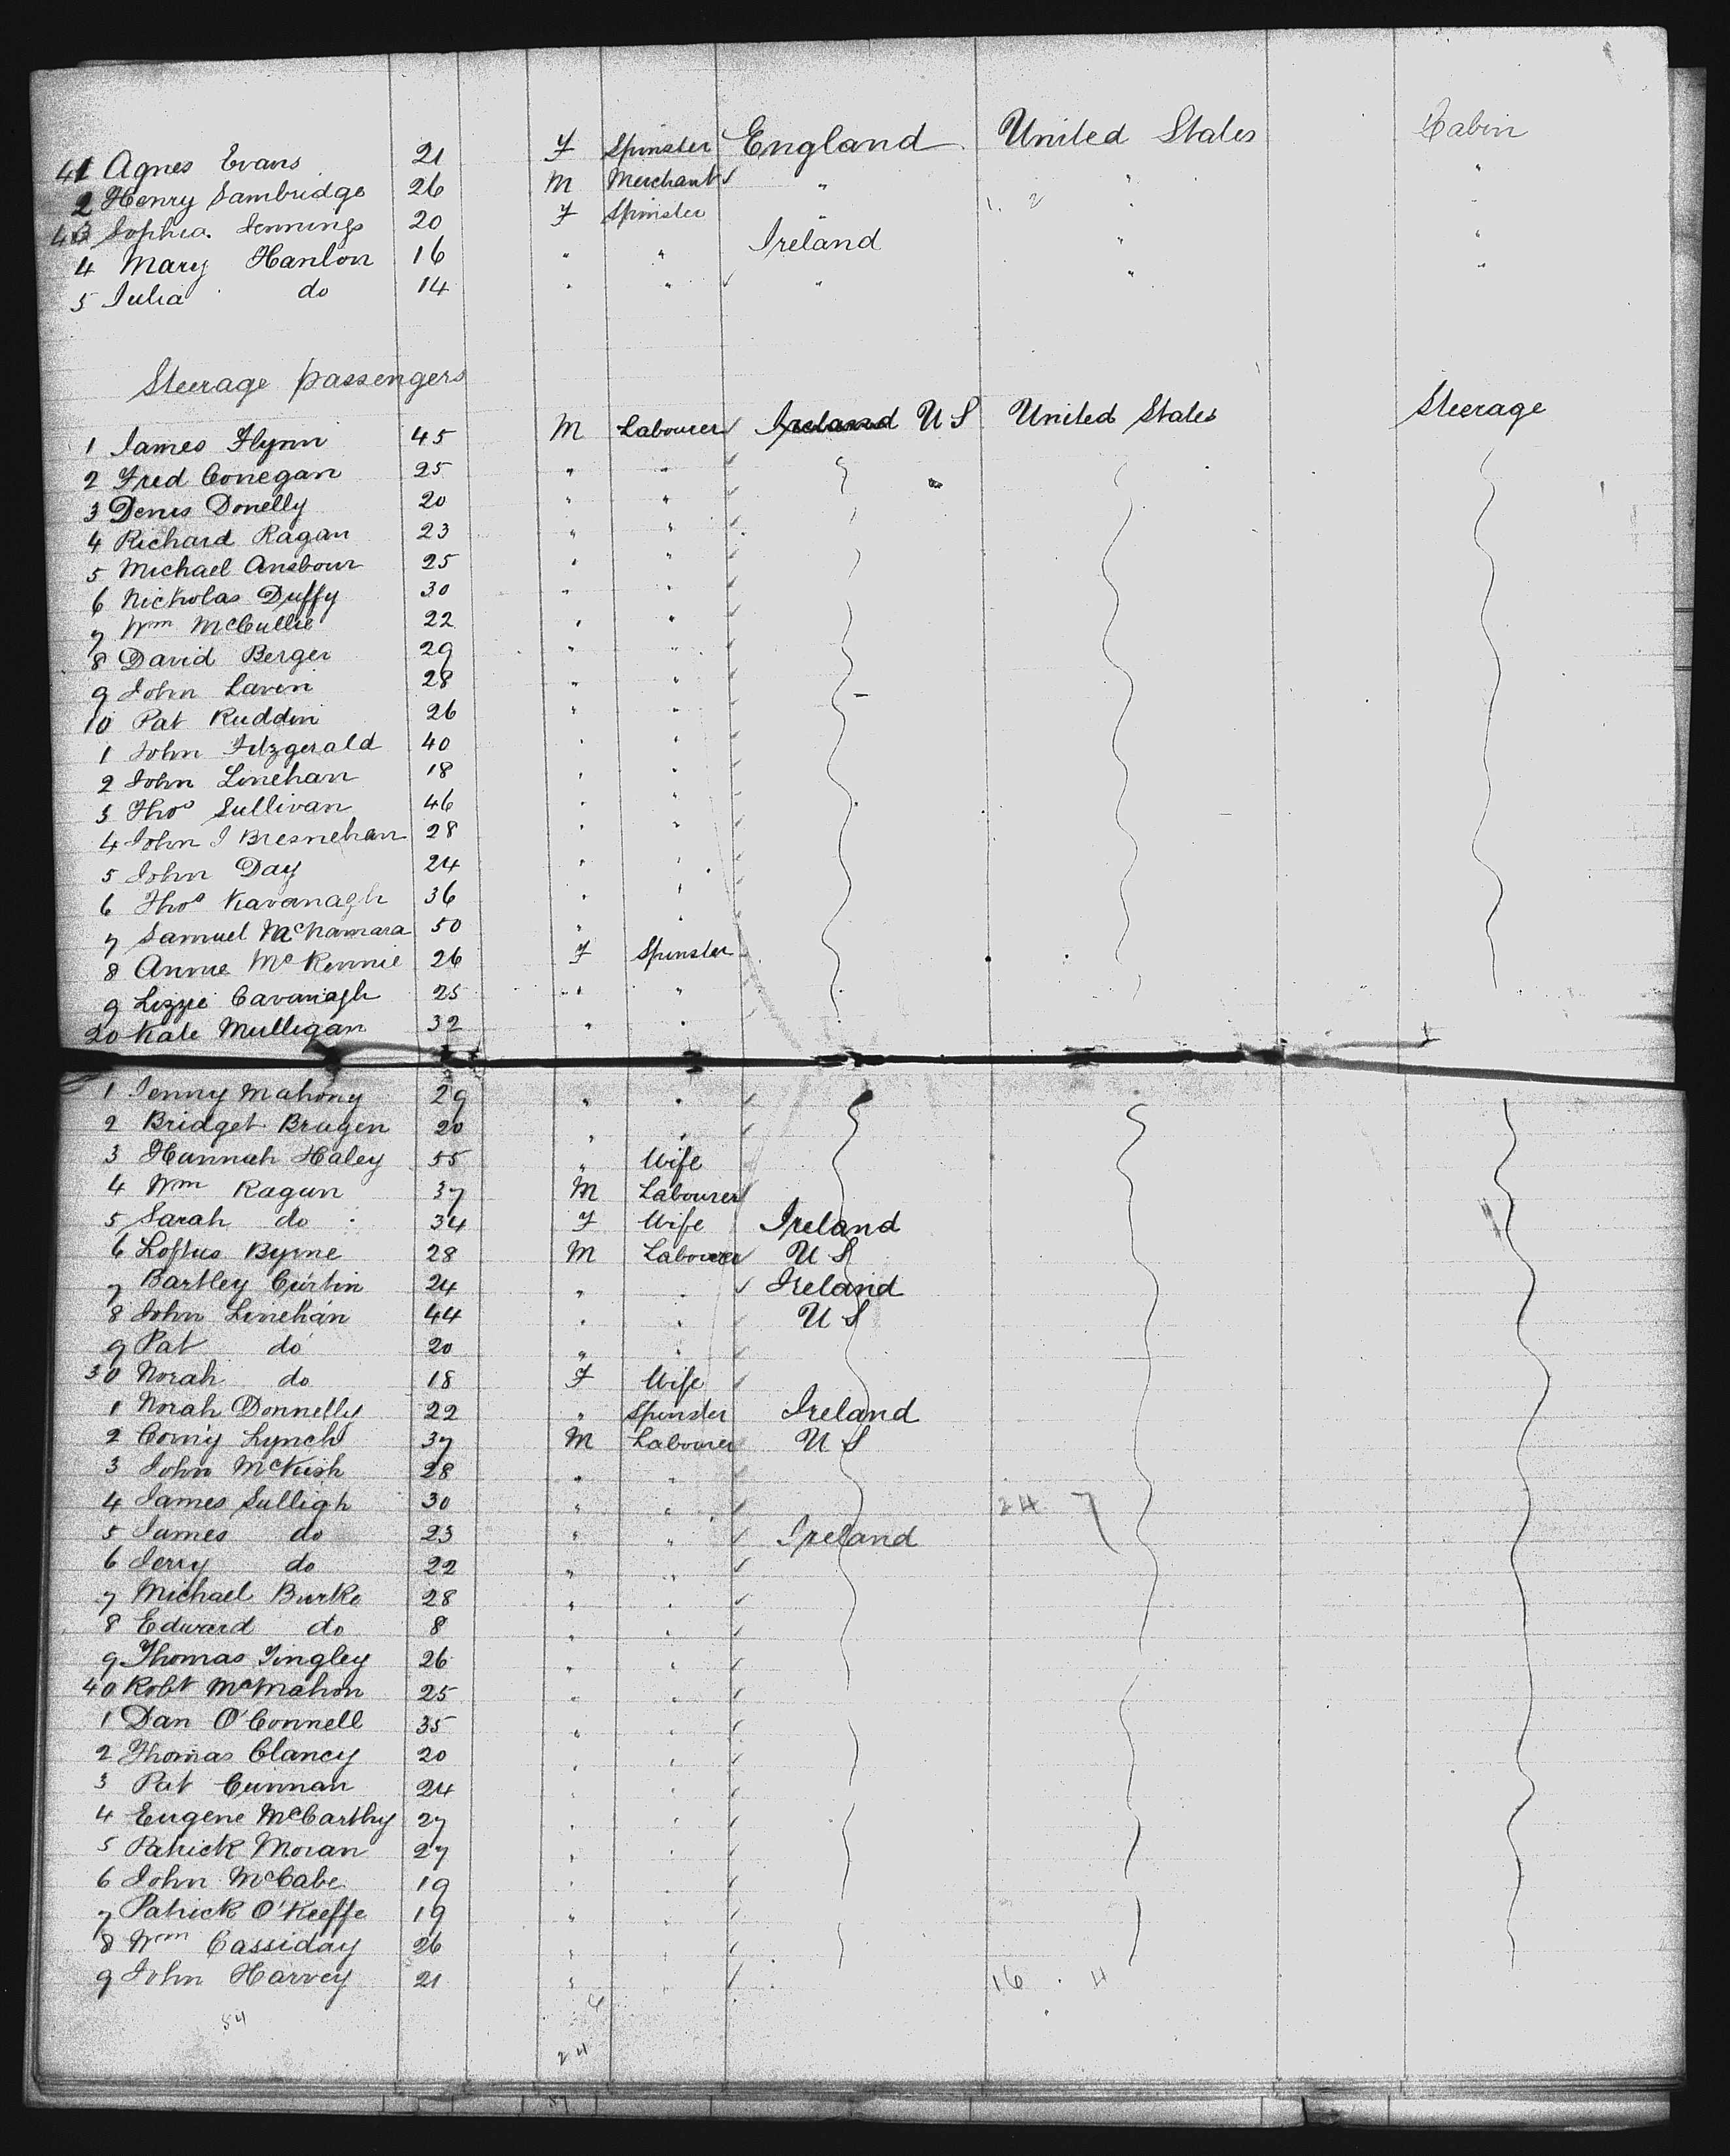 41 Agnes Evans 21 F Spinster England United States Cabin
2 Henry Sambridge 26 M Merchant " " "
43 Sophia Jennings 20 F Spinster " " "
4 Mary Hanlon 16 " " Ireland " "
5 Julia do 14 " " " " "
Steerage passengers
1 James Flynn 45 M Labourer Ireland U S United States Steerage
2 Fred Conegan 25 " "
3 Denis Donelly 20 " "
4 Richard Ragan 23 " "
5 Michael Ansbour 25 " "
6 Nicholas Duffy 30 " "
7 Wm McCullie 22 " "
8 David Berger 29 " "
9 John Lavin 28 " "
10 Pat Ruddin 26 " "
1 John Fitzgerald 40 " "
2 John Linehan 18 " "
3 Thos Sullivan 46 " "
4 John J Bresnehan 28 " "
5 John Day 24 " "
6 Thos Kavanagh 36 " "
7 Samuel McNamara 50 " "
8 Annie McKennie 26 F Spinster
9 Lizzie Cavanagh 25 " "
20 Kate Mulligan 32 " "
1 Jenny Mahony 29 " "
2 Bridget Brugen 20 " "
3 Hannah Haley 55 " Wife
4 Wm Ragan 37 M Labourer
5 Sarah do 34 F Wife Ireland
6 Loftus Byrne 28 M Labourer U S
7 Bartley Curtin 24 " " Ireland
8 John Linehan 44 " " U S
9 Pat do 20 " "
30 Norah do 18 F Wife
1 Norah Donnelly 22 " Spinster Ireland
2 Corny Lynch 37 M Labourer U S
3 John McKush 28 " "
4 James Sulligh 30 " " 24 7
5 James do 23 " " Ireland
6 Jerry do 22 " "
7 Michael Burke 28 " "
8 Edward do 8 " "
9 Thomas Tingley 26 " "
40 Robt McMahon 25 " "
1 Dan O'Connell 35 " "
2 Thomas Clancy 20 " "
3 Pat Cunnan 24 " "
4 Eugene McCarthy 27 " "
5 Patrick Moran 27 " "
6 John McCabe 19 " "
7 Patrick O'Keeffe 19 " "
8 Wm Cassiday 26 " "
9 John Harvey 21 " " 16 4
54
24